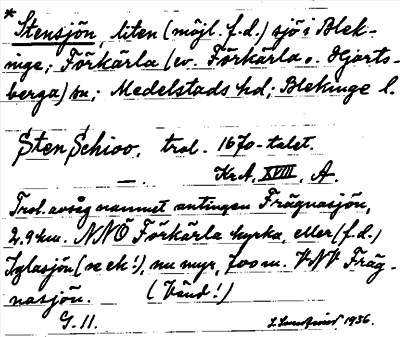 * Stensjön, liten (möjl. f.d.) sjö i Blek-
inge; Förkärla (ev. Förkärla o. Hjorts-
berga) sn; Medelstads hd; Blekinge l.
Sten Schioo, trol. 1670-talet.
—. Kr.A, XVIII, A.
Trol. avsåg namnet antingen Frägnasjön,
2.9 km. NNÖ Förkärla kyrka, eller (f.d.)
Iglasjön (se ek!), nu myr, 700 m. VNV Fräg-
nasjön. (Vänd!)
G. 11. 1936.